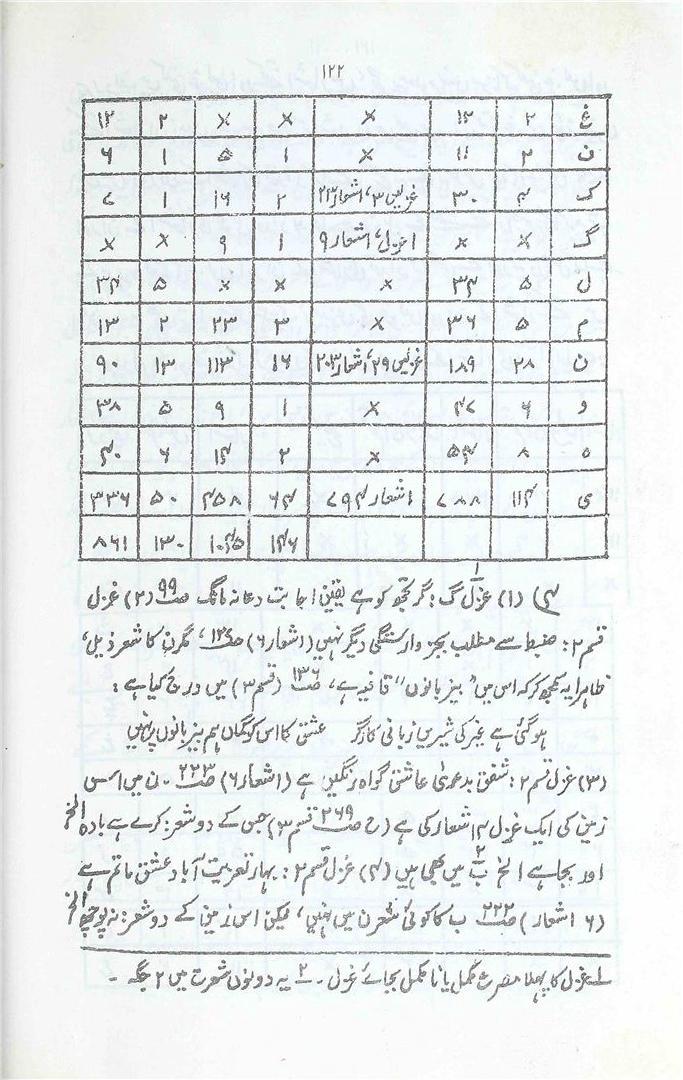 ۱۲۲
غ ۲ ۱۲ × × × ۲ ۱۲
ف ۲ ۱۱ × ۱ ۵ ۱ ۶
ک ۴ ۳۰ غزلیں ۳، اشعار ۲۳ ۲ ۱۶ ۱ ۷
گ × × ۱ غزل، اشعار ۹ ۱ ۹ × ×
ل ۵ ۳۴ × × × ۵ ۳۴
م ۵ ۳۶ × ۳ ۲۳ ۲ ۱۳
ن ۲۸ ۱۸۹ غزلیں ۲۹، اشعار ۲۰۳ ۱۶ ۱۱۳ ۱۳ ۹۰
و ۶ ۴۷ × ۱ ۹ ۵ ۳۸
ہ ۸ ۵۴ × ۲ ۱۴ ۶ ۴۰
ی ۱۱۴ ۷۸۸ اشعار ۷۹۴ ۶۴ ۴۵۸ ۵۰ ۳۳۶
۱۴۶ ۱۰۴۵ ۱۳۰ ۸۶۱
۴) (۱) غزل گ : گر تجھ کو ہے یقین اجابت دعا نہ مانگ ص۹۹ (۲) غزل
قسم ۲: ضبط سے مطلب بجز وارستگی دیگر نہیں (اشعار ۶) ص۱۳۷، مگر ن کا شعر ذیل،
ظاہرا یہ سمجھ کر کہ اس میں "بیز بانوں" قافیہ ہے، ص۱۳۶ (قسم ۳) میں درج کیا ہے :
ہو گئی ہے غیر کی شیریں زبانی کارگر عشق کا اس کو گماں ہم بیز بانوں پر نہیں
(۳) غزل قسم ۲: شفق بدعویٰ عاشق گواہ رنگیں ہے (اشعار ۶) ص۲۲۳ ۔ ن میں اس
زمین کی ایک غزل ۴ اشعار کی ہے (ح ص۲۶۹ قسم ۳) جس کے دو شعر: کرے ہے بادہ الخ
اور بجا ہے الخ ب۲ میں بھی ہیں (۴) غزل قسم ۲: بہار تعزیت آباد عشق ماتم ہے
(۶ اشعار) ص۲۲۲ ب کا کوئی شعر ن میں نہیں، لیکن اس زمین کے دو شعر: نہ پوچھ الخ
۱ـ غزل کا پہلا مصرع مکمل یا نا مکمل بجائے غزل ۔ ۲ـ یہ دونوں شعر ت میں ۲ جگہ ۔